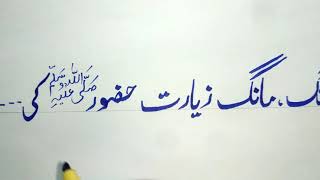 ، مانگ زیارت حضور صلی اللہ علیہ وسلم کی ---